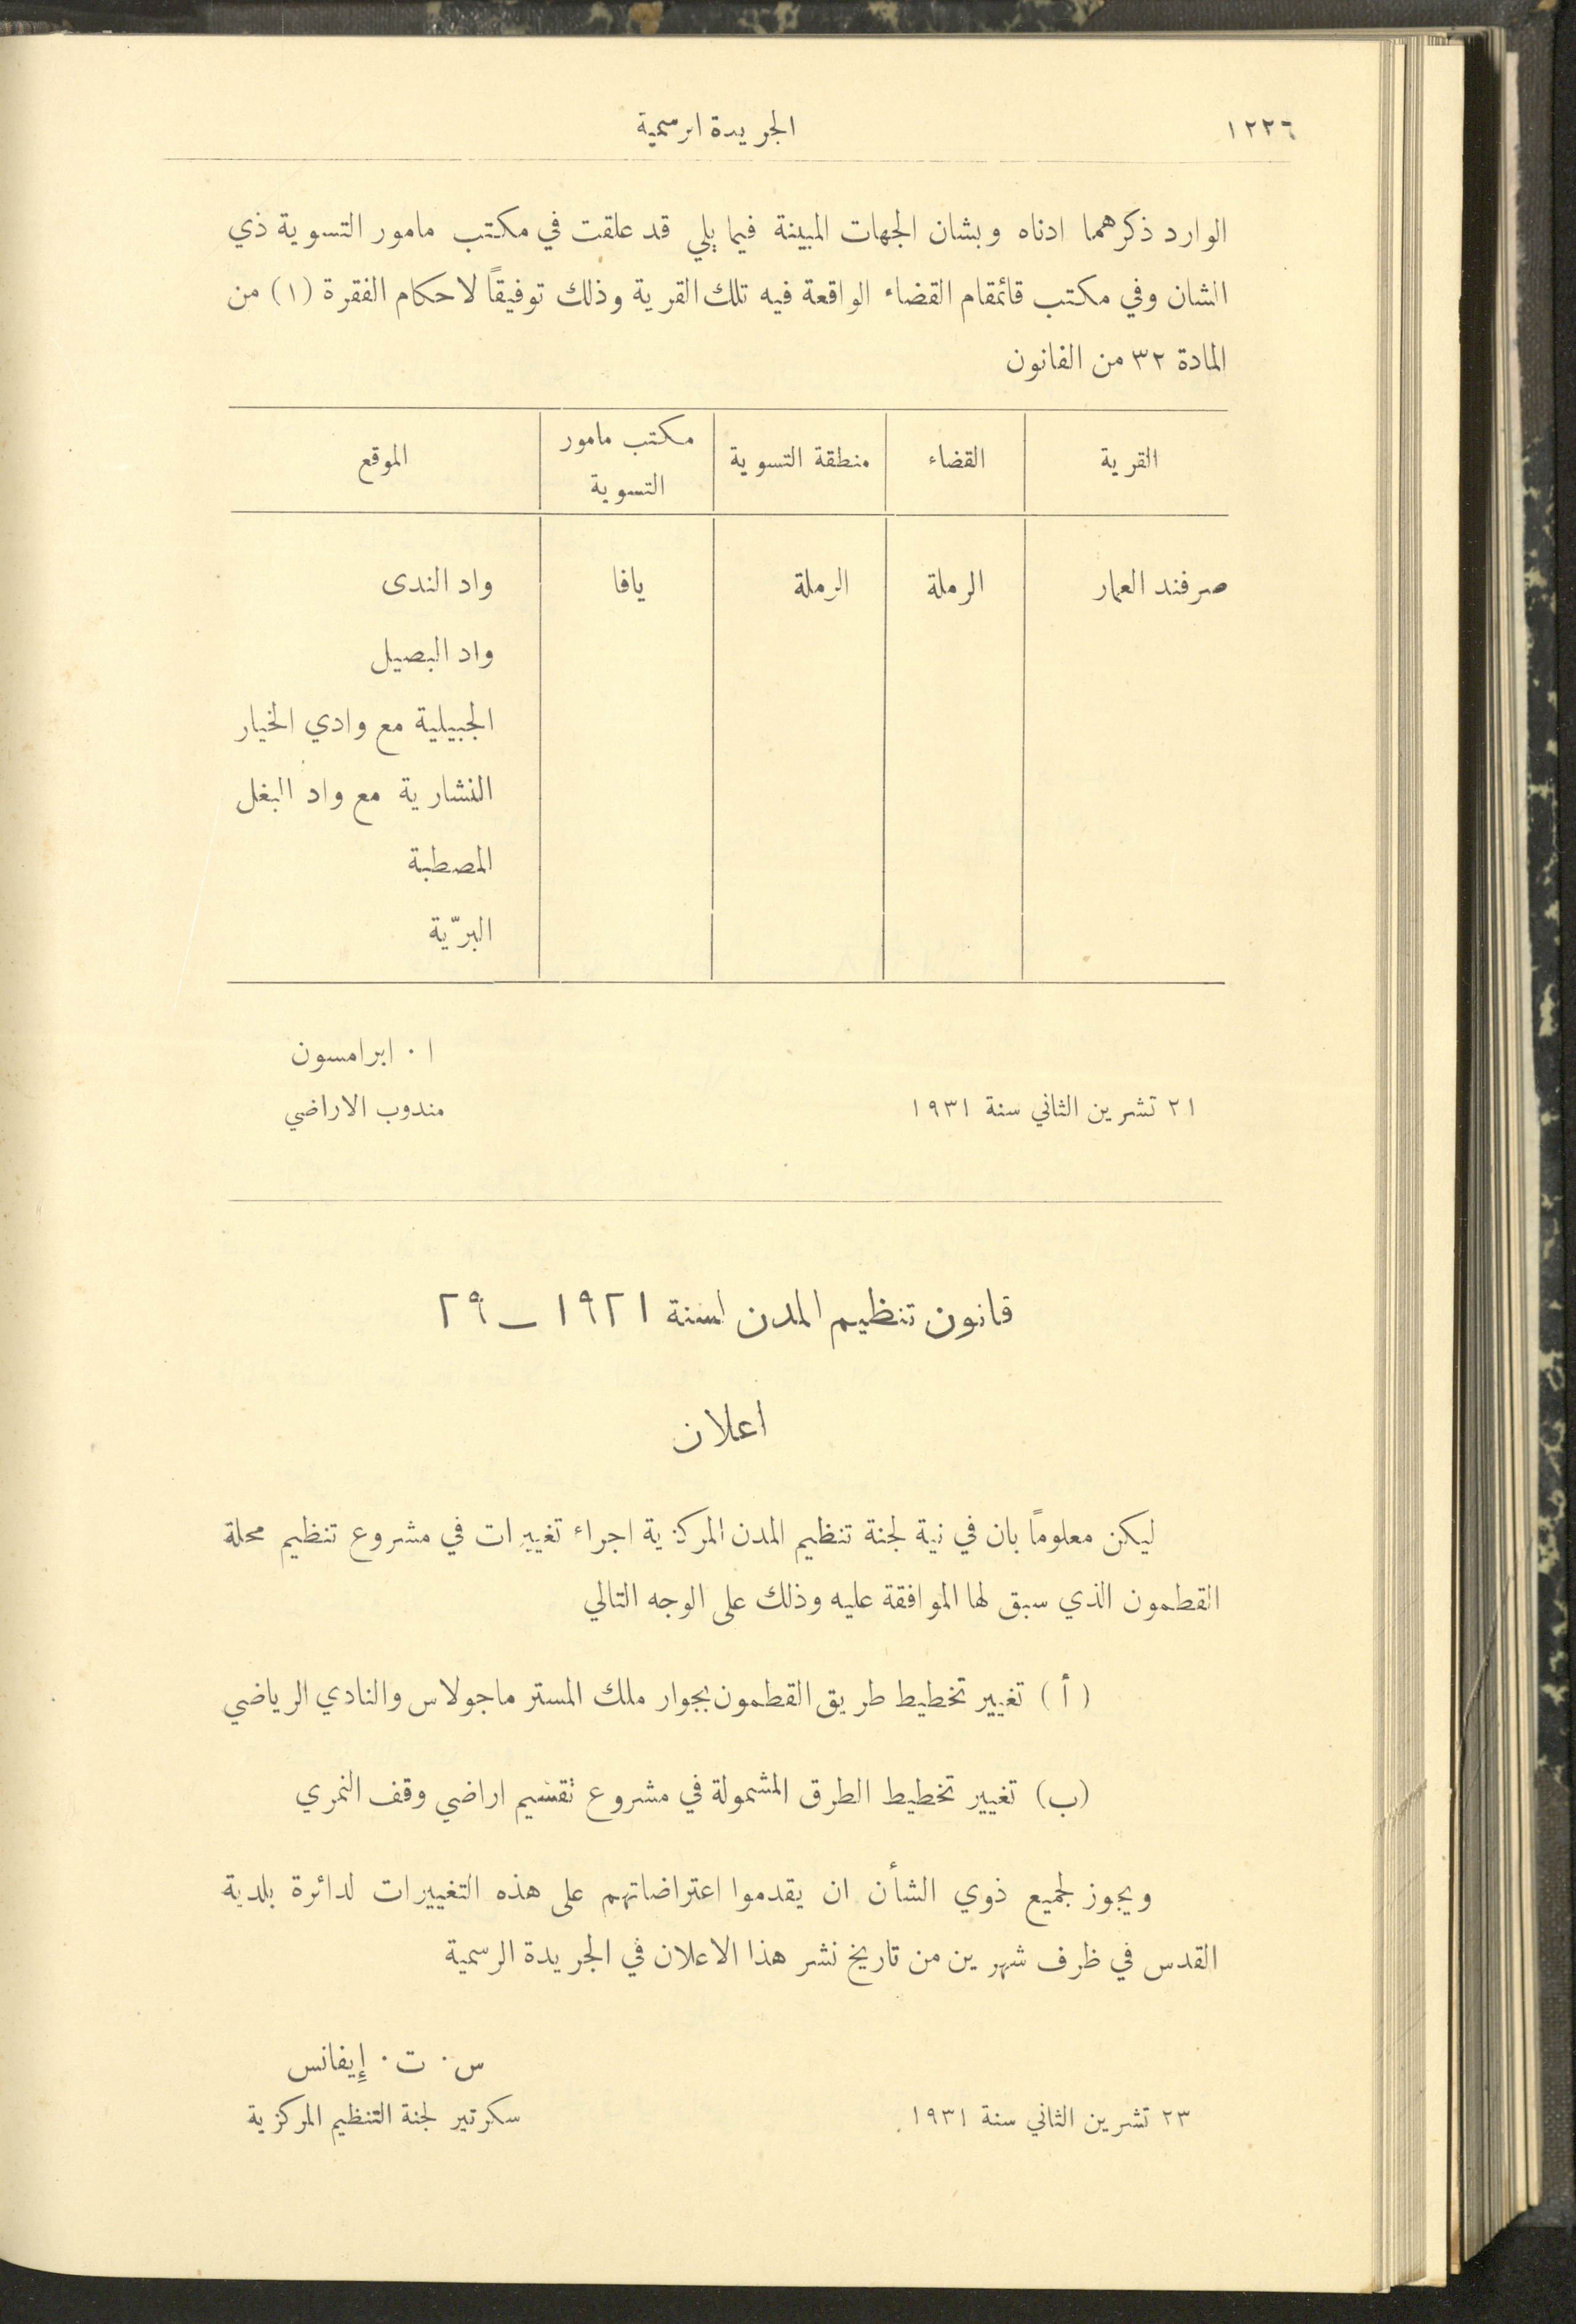 ١٢٢٦
الجريدة الرسمية
الوارد ذكرهما ادناه وبشان الجهات المبينة فيما يلي قد علقت في مكتب مامور التسوية ذي
الشان وفي مكتب قائمقام القضاء الواقعة فيه تلك القرية وذلك توفيقاً لاحكام الفقرة (١) من
المادة ٣٢ من القانون
القرية | القضاء | منطقة التسوية | مكتب مامور التسوية | الموقع
صرفند العمار | الرملة | الرملة | يافا | واد الندى
واد البصيل
الجبيلية مع وادي الخيار
النشارية مع واد البغل
المصطبة
البرّية
ا٠ ابرامسون
٢١ تشرين الثاني سنة ١٩٣١ مندوب الاراضي
قانون تنظيم المدن لسنة ١٩٢١ – ٢٩
اعلان
ليكن معلوماً بان في نية لجنة تنظيم المدن المركزية اجراء تغييرات في مشروع تنظيم محلة
القطمون الذي سبق لها الموافقة عليه وذلك على الوجه التالي
(أ) تغيير تخطيط طريق القطمون بجوار ملك المستر ماجولاس والنادي الرياضي
(ب) تغيير تخطيط الطرق المشمولة في مشروع تقسيم اراضي وقف النمري
ويجوز لجميع ذوي الشأن ان يقدموا اعتراضاتهم على هذه التغييرات لدائرة بلدية
القدس في ظرف شهرين من تاريخ نشر هذا الاعلان في الجريدة الرسمية
س٠ ت٠ إيفانس
٢٣ تشرين الثاني سنة ١٩٣١ سكرتير لجنة التنظيم المركزية